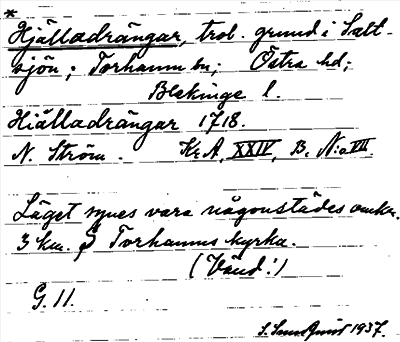 *
Hjälladrängar, trol. grund i Salt-
sjön; Torhamn sn; Östra hd;
Blekinge l.
Hiälladrängar 1718.
N. Ström. Kr.A, XXIV, B, N:o VII
Läget synes vara någonstädes omkr.
3 km. S Torhamns kyrka.
(Vänd!)
G. 11.
1937.